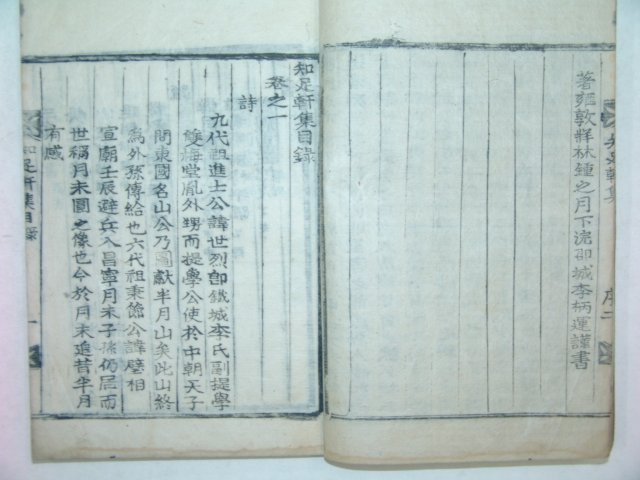 著雍敦牂林鍾之月下浣卽城李柄運謹書
知足軒集
序二
知足軒集目錄
卷之一
詩
九代祖進士公諱世烈卽鐵城李氏副提學
雙梅堂胤外甥而提學公使於中朝天子
問東國名山公乃圖獻半月山矣此山終
爲外孫傳給也六代祖秉節公諱璧相
宣廟壬辰避兵入昌寧月未子孫仍居而
世稱月未圓之像也今於月未追昔半月
有感
知足軒集目錄
一